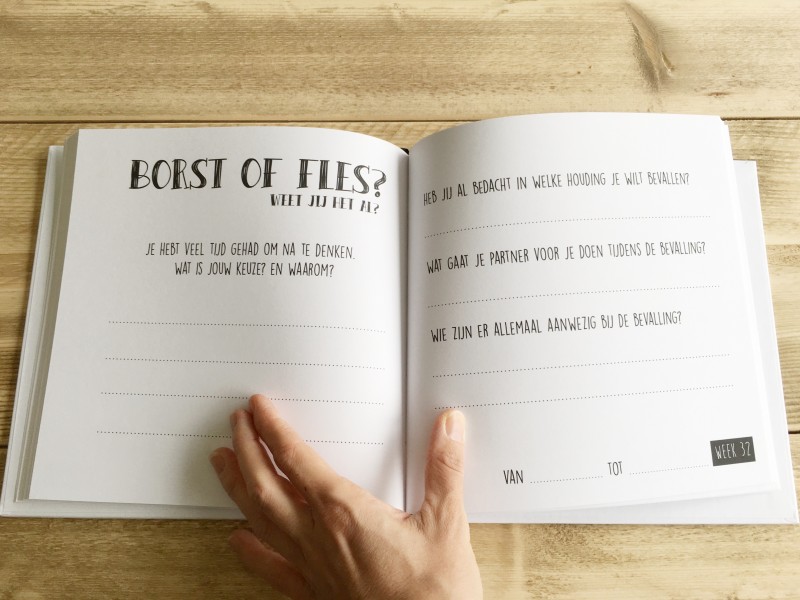 BORST OF FLES?
WEET JIJ HET AL?
JE HEBT VEEL TIJD GEHAD OM NA TE DENKEN.
WAT IS JOUW KEUZE? EN WAAROM?
HEB JIJ AL BEDACHT IN WELKE HOUDING JE WILT BEVALLEN?
WAT GAAT JE PARTNER VOOR JE DOEN TIJDENS DE BEVALLING?
WIE ZIJN ER ALLEMAAL AANWEZIG BIJ DE BEVALLING?
VAN TOT WEEK 32